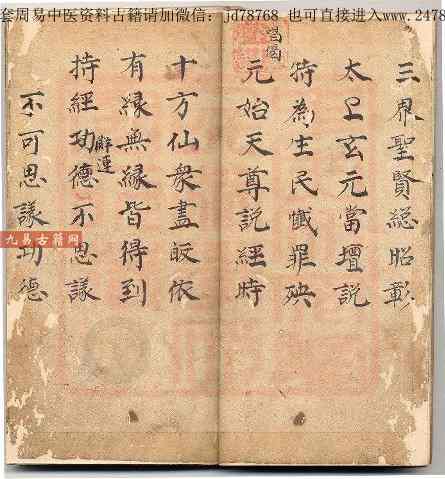 套周易中医资料古籍请加微信: jd78768 也可直接进入www.2478
三界聖賢総昭彰
太上玄元當壇説
特為生民懺罪殃
元始天尊説經時
十方仙衆盡皈依
有緣無緣皆得到
辭連
持經功德不思議
不可思議功德
九易古籍网